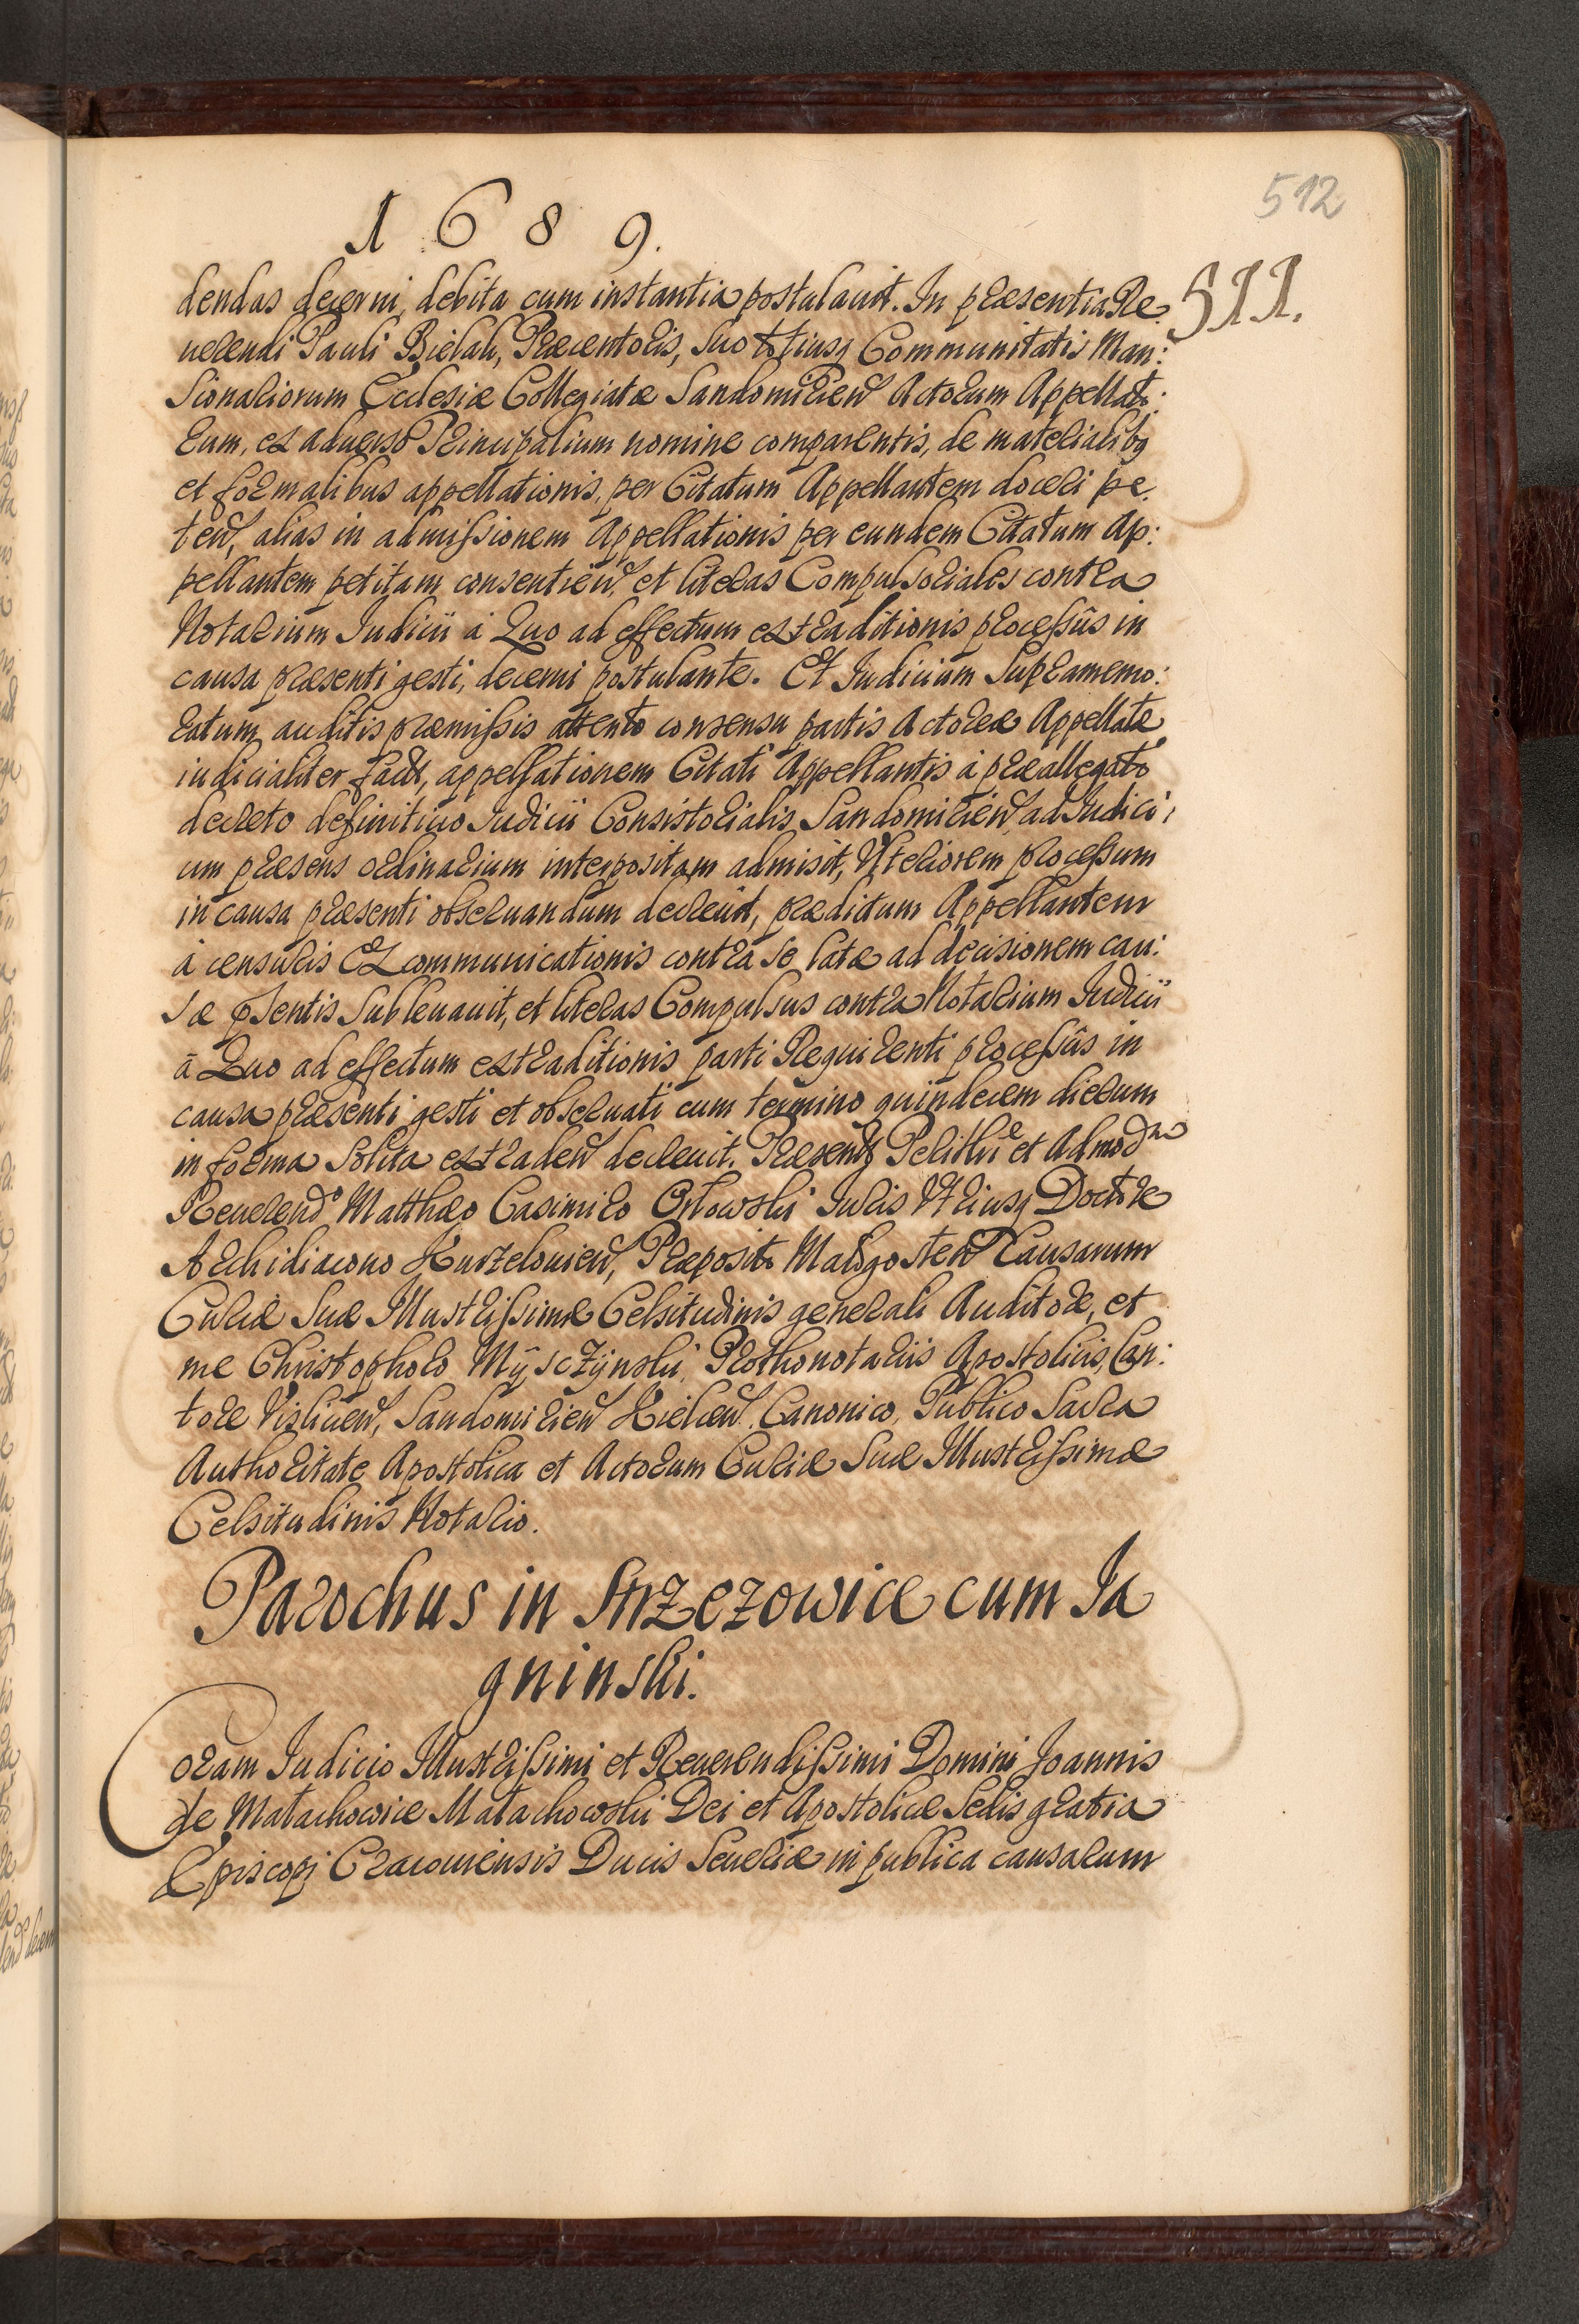 512
1689.
511.
dendas decerni, debita cum instantia postulavit. In præsentia Re
uerendi Pauli Bielak, Præcentoris, suo totiusq Communitatis Man:
sionariorum Ecclesiæ Collegiatæ Sandomirien Actorum Appellato:
rum, ex aduerso Principalium nomine comparentis, de materialibq
et formalibus appellationis, per Citatum Appellantem doceri pe.
ten, alias in admissionem Appellationis per eundem Citatum Ap:
pellantem petitam consentien, et literas Compulsoriales contra
Notarium Iudicii à Quo ad effectum extraditionis processûs in
causa præsenti gesti, decerni postulante. Et Iudicium supramemo:
ratum auditis præmissis attento consensu partis Actoreæ Appellatæ
iudicialiter facto, appellationem Citati Appellantis à præallegato
decreto definitiuo Iudicii Consistorialis Sandomirien, ad Iudici:
um præsens ordinarium interpositam admisit, Vlteriorem processum
in causa præsenti obseruandum decreuit, prædictum Appellantem
à censuris Excommunicationis contra se latæ ad decisionem cau:
sæ psentis subleuauit, et literas Compulsus contra Notarium Iudicii
à Quo ad effectum extraditionis parti Requirenti processûs in
causa præsenti gesti et obseruati cum termino quindecem dierum
in forma solita extraden decreuit. Præsentq Perillri et Admodm
Reuerendo Matthæo Casimiro Orłowski Iuris Vtriusq Doctore
Archidiacono Kurzelouien, Præposito Małogosten Causarum
Curiæ Suæ Illustrissimæ Celsitudinis generali Auditore, et
me Christophoro Mÿsczÿnski, Prothonotariis Apostolicis, Can:
tore Vislicien, Sandomirien Kielcen Canonico, Publico Sacra
Authoritate Apostolica et Actorum Curiæ Suæ Illustrissimæ
Celsitudinis Notario.
Parochus in Strzezowice cum Ja
gninski.
Coram Iudicio Illustrissimi et Reuerendissimi Domini Joannis
de Małachowice Małachowski Dei et Apostolicæ Sedis gratia
Episcopi Cracouiensis Ducis Seueriæ in publica causarum